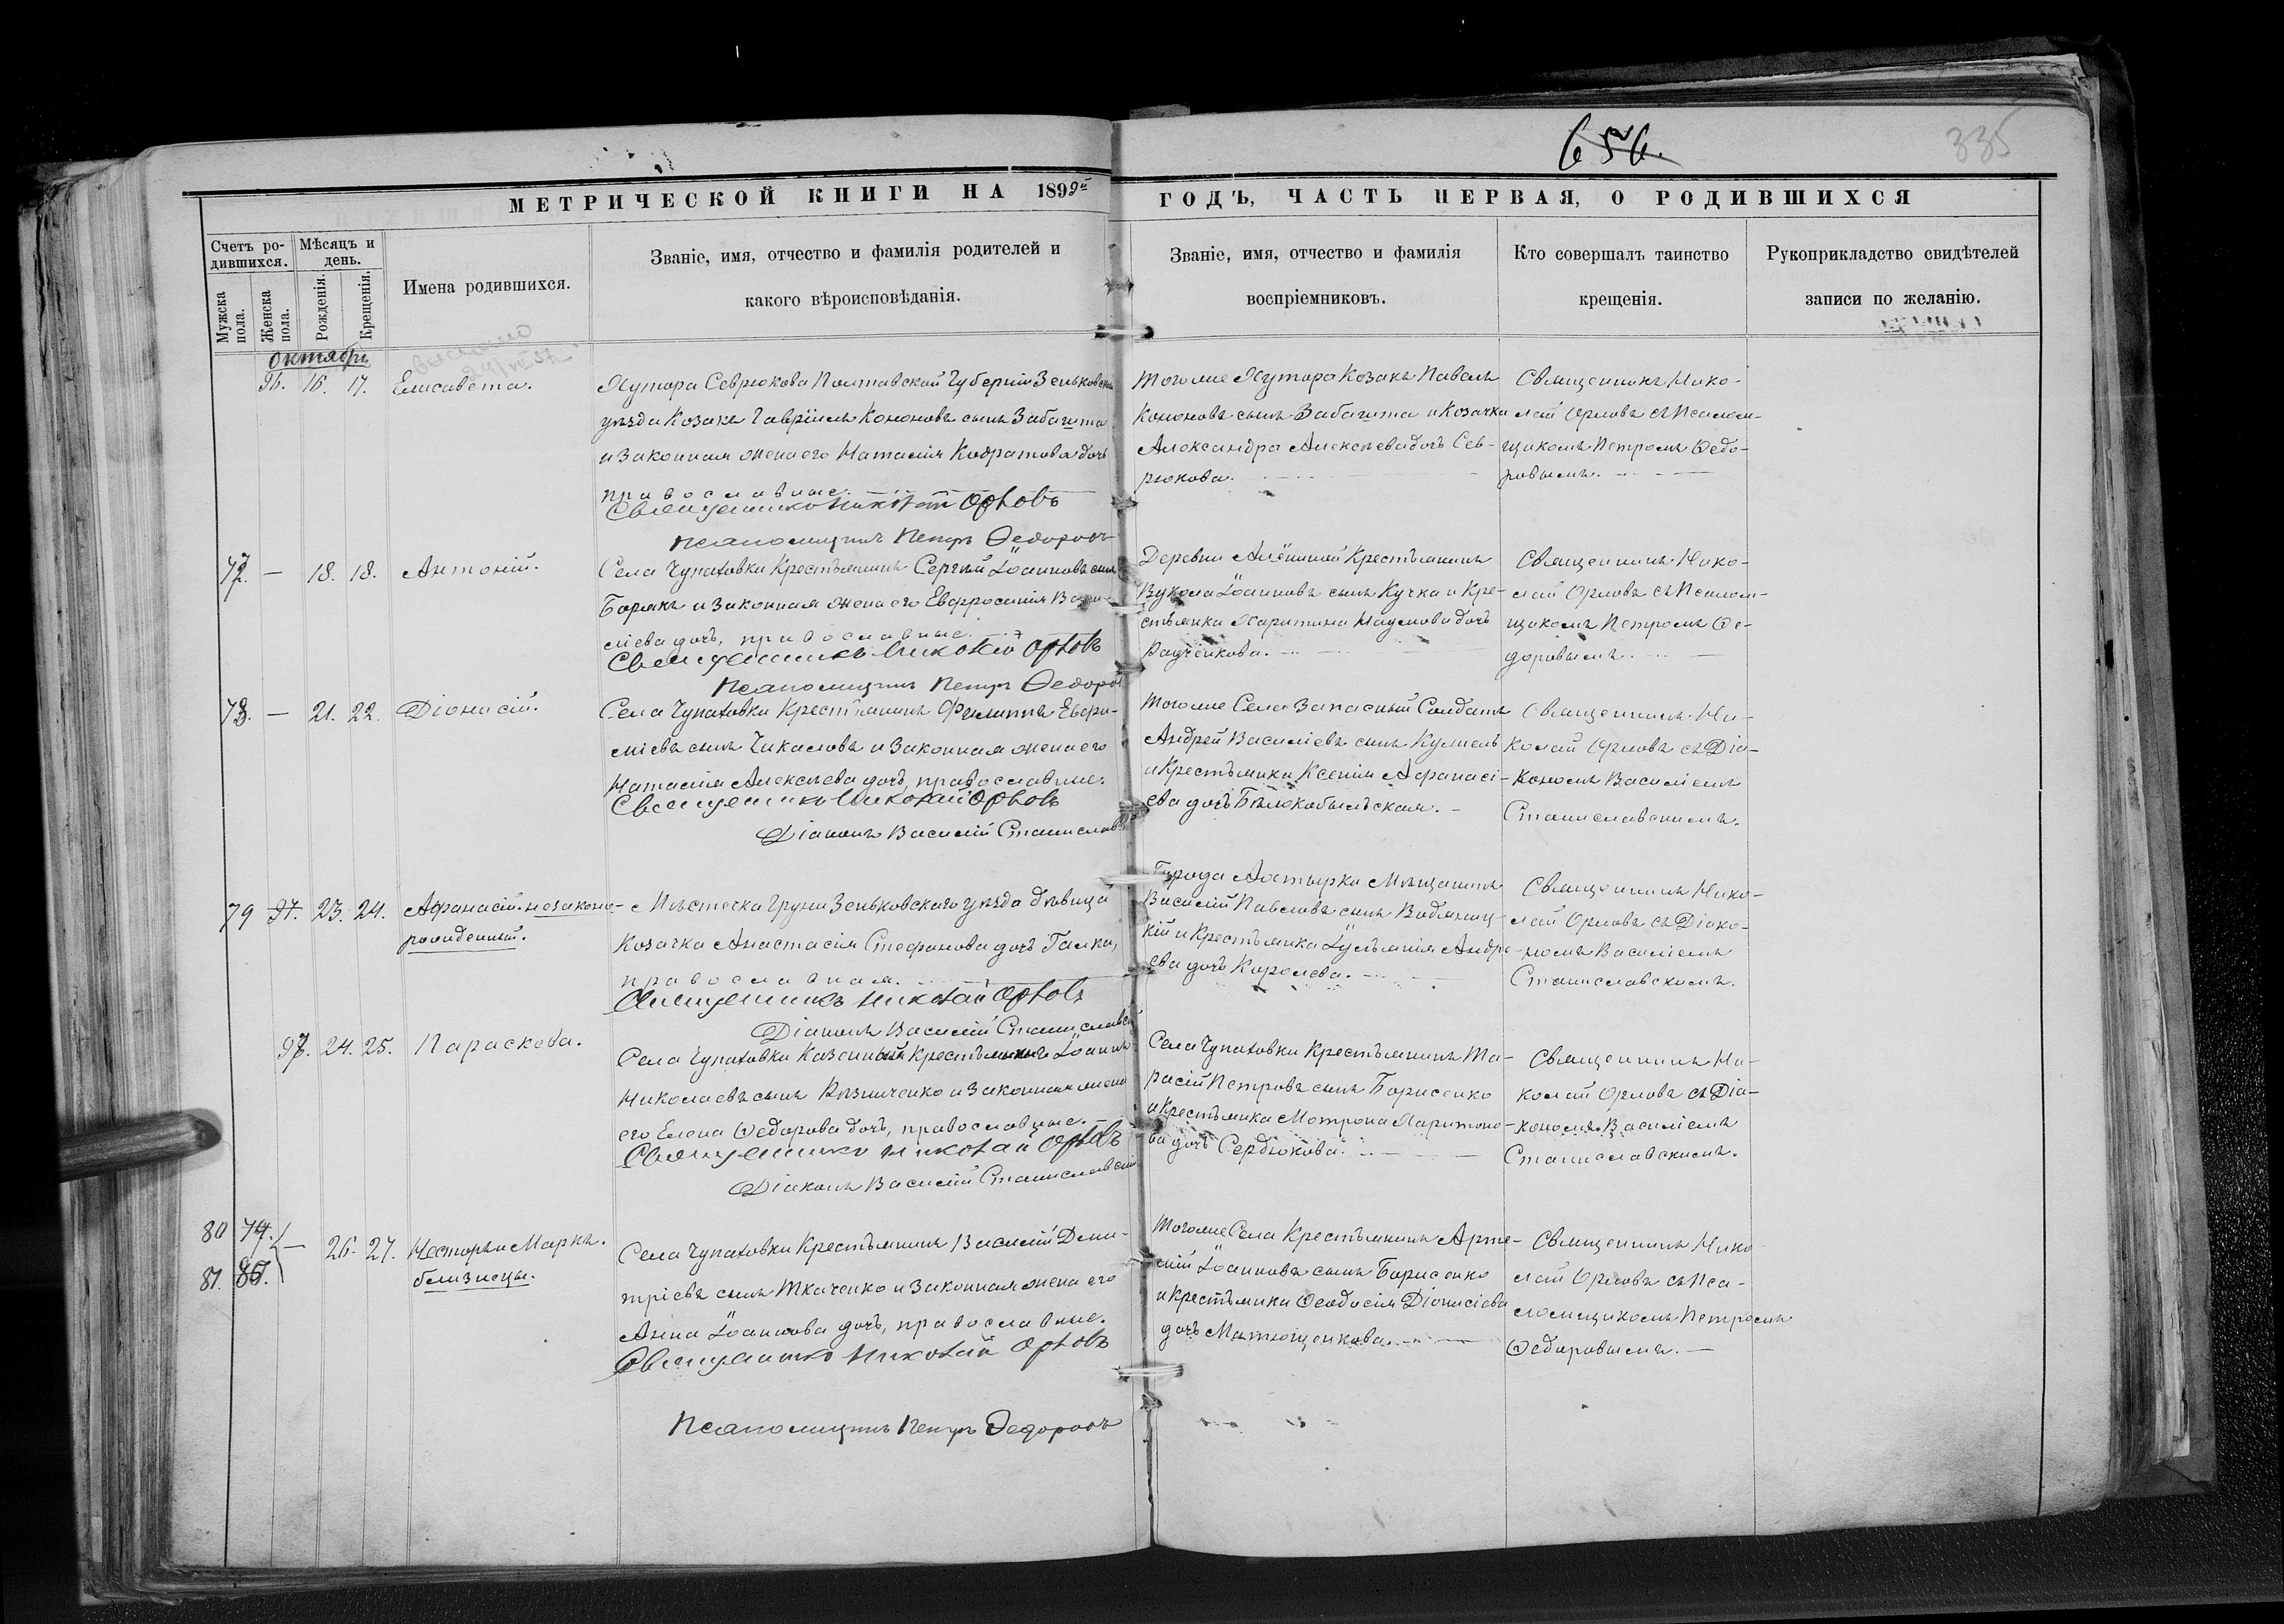 656.
335
МЕТРИЧЕСКОЙ КНИГИ НА 1899й ГОДЪ, ЧАСТЬ ПЕРВАЯ, О РОДИВШИХСЯ
Счетъ ро-
дившихся.
Мужска пола.
Женска пола.
Мѣсяцъ и
день.
Рожденія.
Крещенія.
Имена родившихся.
Званіе, имя, отчество и фамилія родителей и
какого вѣроисповѣданія.
Званіе, имя, отчество и фамилія
воспріемниковъ.
Кто совершалъ таинство
крещенія.
Рукоприкладство свидѣтелей
записи по желанію.
октябрь
96. 16. 17. Елисавета.
Хутора Севрюкова Полтавской Губерніи Зеньковска
уѣзда Козакъ Гавріилъ Кононовъ сынъ Забашта
и законная жена его Наталія Кодратова дочь
православные.
Священникъ Николай Орловъ
Псаломщикъ Петръ Федоровъ
Тогоже Хутора Козакъ Павелъ
Кононовъ сынъ Забашта и Козачка
Александра Алексѣева дочь Сев-
рюкова.
Священникъ Нико-
лай Орловъ съ Псалом-
щикомъ Петромъ Ѳедо-
ровымъ.
77. — 18. 18. Антоній.
Села Чупаховки Крестьянинъ Сергій Іоанновъ сынъ
Борякъ и законная жена его Евфросинія Васи-
ліева дочь, православные.
Священникъ Николай Орловъ
Псаломщикъ Петръ Федоровъ
Деревни Алёшиной Крестьянинъ
Вукола Іоанновъ сынъ Кучка и Кре-
стьянка Харитина Наумова дочь
Радченкова.
Священникъ Нико-
лай Орловъ съ Псалом-
щикомъ Петромъ Ѳе-
доровымъ.
78. — 21. 22. Діонисій.
Села Чупаховки Крестьянинъ Филиппъ Евфи-
міевъ сынъ Чикаловъ и законная жена его
Наталія Алексѣева дочь, православные.
Священникъ Николай Орловъ
Діаконъ Василій Станиславск
Тогоже Села Запасный Солдатъ
Андрей Василіевъ сынъ Кужель
и Крестьянка Ксенія Афанасі-
ева дочь Бѣлокобыльская.
Священникъ Ни-
колай Орловъ съ Діа-
кономъ Василіемъ
Станиславскимъ.
79 97. 23. 24. Афанасій. незаконно-
рожденный.
Мѣстечка Груни Зеньковскаго уѣзда дѣвица
Козачка Анастасія Стефанова дочь Галка,
православная.
Священникъ Николай Орловъ
Діаконъ Василій Станиславскі
Города Ахтырки Мѣщанинъ
Василій Павловъ сынъ Водяниц-
кій и Крестьянка Іуліанія Андре-
ева дочь Королева.
Священникъ Нико-
лай Орловъ съ Діако-
номъ Василіемъ
Станиславскимъ.
97. 24. 25. Параскева.
Села Чупаховки Казенный Крестьянинъ Іоаннъ
Николаевъ сынъ Рѣзниченко и законная жена
его Елена Ѳедорова дочь, православные.
Священникъ Николай Орловъ
Діаконъ Василій Станиславскій
Села Чупаховки Крестьянинъ Та-
расій Петровъ сынъ Борисенко
и Крестьянка Мотрона Харитоно-
ва дочь Сердюкова.
Священникъ Ни-
колай Орловъ съ Діа-
кономъ Василіемъ
Станиславскимъ.
80 79. — 26. 27. Несторъ и Маркъ.
81. 80. близнецы.
Села Чупаховки Крестьянинъ Василій Дими-
тріевъ сынъ Ткаченко и законная жена его
Анна Іоаннова дочь, православные.
Священникъ Николай Орловъ
Псаломщикъ Петръ Федоровъ
Тогоже Села Крестьянинъ Арте-
мій Іоанновъ сынъ Борисенко
и Крестьянка Ѳеодосія Діонисіева
дочь Матющенкова.
Священникъ Нико-
лай Орловъ съ Пса-
ломщикомъ Петромъ
Ѳедоровымъ.